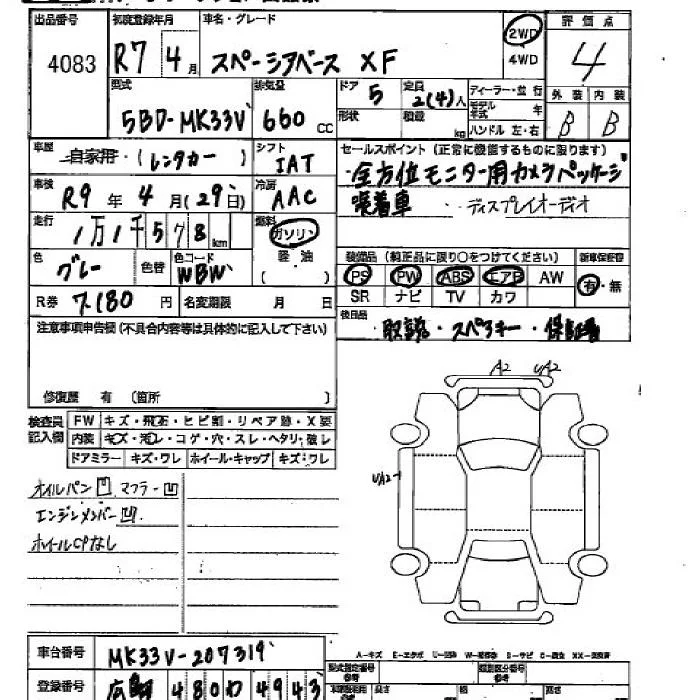 出品番号 初度登録年月 車名・グレード 評価点
4083 R7 4月 スペーシアベース XF 2WD 4WD 4
型式 排気量 ドア 定員 ディーラー・並行 外装 内装
5BD-MK33V 660cc 5 2(4)人 モデル年式 年 B B
形状 積載 kg ハンドル 左・右
車歴 自家用・(レンタカー) シフト IAT
セールスポイント (正常に機能するものに限ります)
全方位モニター用カメラパッケージ
装着車 ディスプレイオーディオ
車検 R9年4月(29日) 冷房 AAC
走行 1万1千578km 燃料 ガソリン 軽油 ( )
色 グレー 色替 色コード WBW
装備品 (純正品に限り○をつけてください) 新車保証書
PS PW ABS エアB AW 有・無
SR ナビ TV カワ
R券 7,180円 名変期限 月 日
後日品 取説・スペアキー・保証書
注意事項申告欄 (不具合内容等は具体的に記入して下さい)
修復歴 有 (箇所 )
A2 UA2
検査員記入欄 FW キズ・飛石・ヒビ割・リペア跡・X要
内装 キズ・汚レ・コゲ・穴・スレ・ヘタリ・破レ
ドアミラー キズ・ワレ ホイール・キャップ キズ・ワレ
UA2-1
オイルパン凹 マフラー凹
エンジンメンバー凹
ホイールCPなし
車台番号 MK33V-207319
登録番号 480わ4943